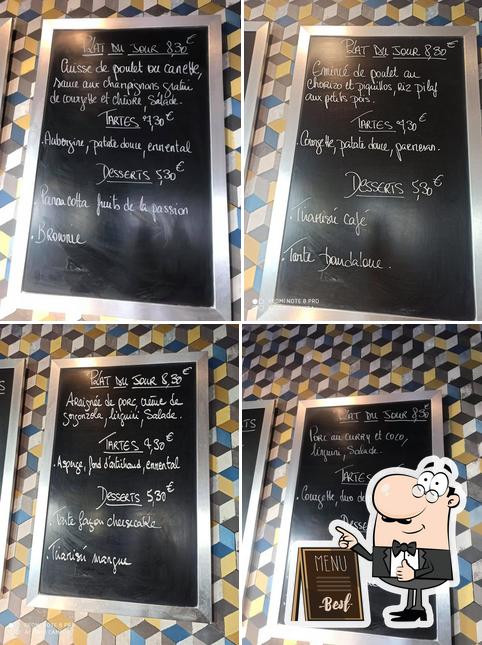 PLAT DU JOUR 8,30€
Cuisse de poulet ou canette,
sauce aux champignons gratin
de courgette et chèvre, Salade.
TARTES 7,30€
. Aubergine, patate douce, emmental
DESSERTS 5,30€
. Panna cotta fruits de la passion
. BROWNIE
PLAT DU JOUR 8,30€
Emincé de poulet au
chorizo et piquillos, riz pilaf
aux petits pois.
TARTES 7,30€
. Courgette, patate douce, parmesan.
DESSERTS 5,30€
. Tiramisu café
. Tarte bourdaloue.
REDMI NOTE 8 PRO
PLAT DU JOUR 8,30€
Araignée de porc, crème de
gorgonzola, linguini, Salade.
TARTES 7,30€
. Asperge, fond d'artichaud, emmental
DESSERTS 5,30€
façon cheesecake
. Tiramisu mangue
REDMI NOTE 8 PRO
AI QUAD CAMERA
TS
PLAT DU JOUR 8,30€
Porc au curry et coco,
linguini, Salade.
TARTES
. Courgette, duo de
DESSE
MENU
Best